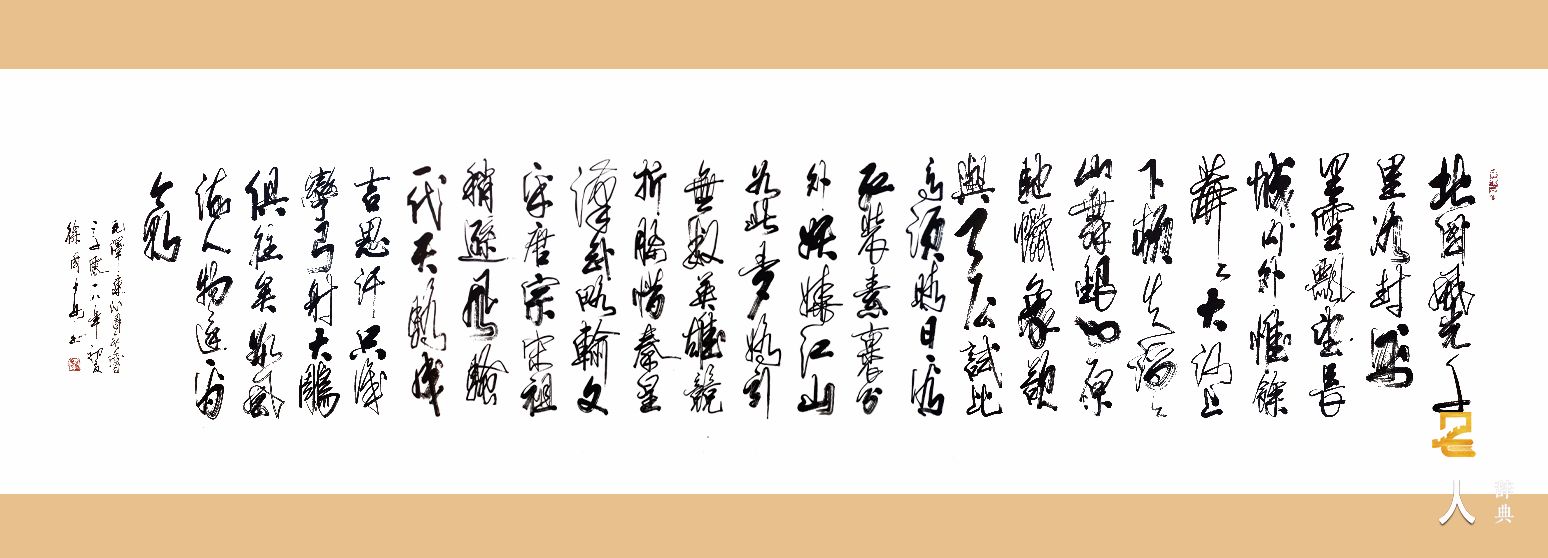 北國風光千
里冰封萬
里雪飄望長
城内外惟餘
莽々大河上
下頓失滔々
山舞銀蛇原
馳蠟象欲
與天公試比
高須晴日看
紅裝素裹分
外妖嬈江山
如此多嬌引
無數英雄競
折腰惜秦皇
漢武略輸文
采唐宗宋祖
稍遜風騷
一代天驕成
吉思汗只識
彎弓射大雕
俱往矣數風
流人物還看
今朝
毛澤東沁園春雪
人
辞典